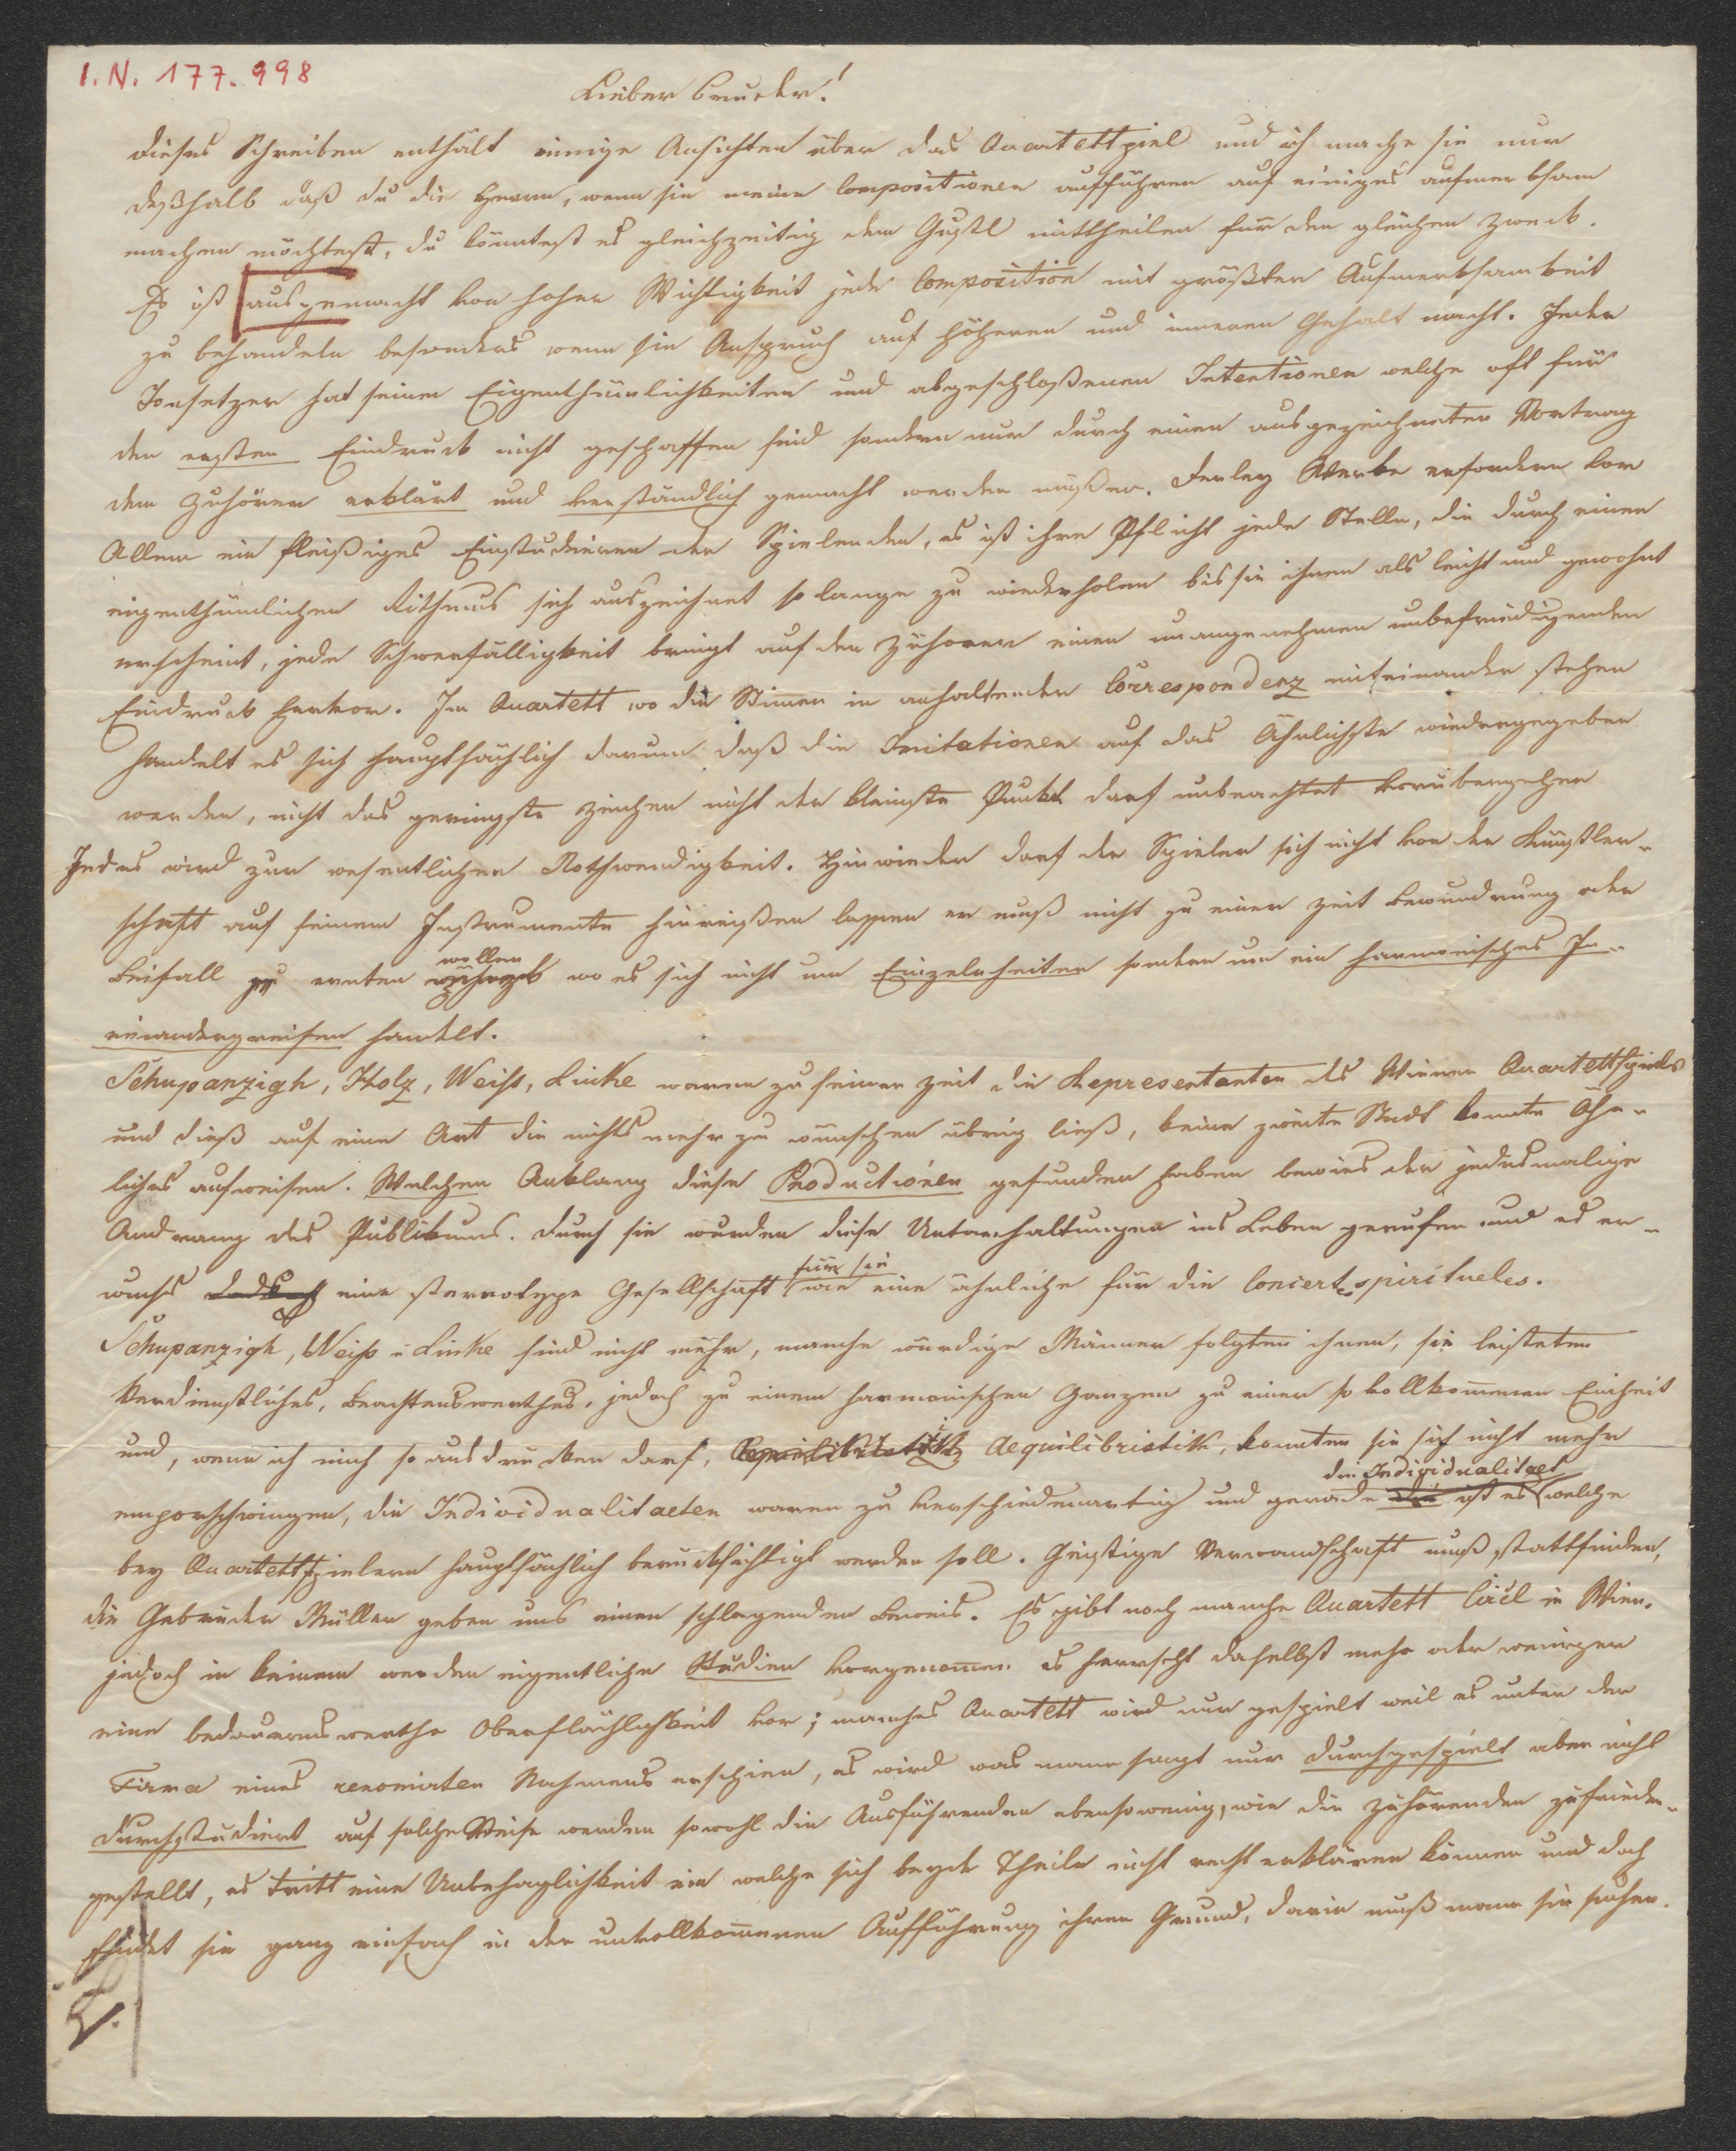 I. N. 177.998
Lieber Bruder!
dieses Schreiben enthält einige Ansichten über das Quartettspiel und ich mache sie nur
deßhalb daß du die Herrn, wenn sie meine Compositionen aufführen auf einiges aufmerksam
machen möchtest, du könntest es gleichzeitig dem Gustl mittheilen für den gleichen Zweck.
Es ist ausgemacht von hoher Wichtigkeit jede Composition mit größter Aufmerksamkeit
zu behandeln besonders wenn sie Anspruch auf höheren und inneren Gehalt macht. Jeder
Tonsetzer hat seine Eigenthümlichkeiten und abgeschloßenen Intentionen welche oft für
den ersten Eindruck nicht geschaffen sind sondern nur durch einen ausgezeichneten Vortrag
dem Zuhörer erklärt und verständlich gemacht werden müßen. Derley Werke erfordern vor
Allem ein fleißiges Einstudieren der Spielenden, es ist ihre Pflicht jede Stelle, die durch einen
eigenthümlichen Rithmus sich auszeichnet so lange zu wiederholen bis sie ihnen als leicht und gewohnt
erscheint, jede Schwerfälligkeit bringt auf den Zuhörer einen unangenehmen unbefriedigenden
Eindruck hervor. Im Quartett wo die Stimen in anhaltender Correspondenz miteinander stehen
handelt es sich hauptsächlich darum daß die Imitationen auf das Ähnlichste wiedergegeben
werden, nicht das geringste Zeichen nicht der kleinste Punkt darf unbeachtet vorübergehen
Jedes wird zur wesentlichen Nothwendigkeit. Hinwieder darf der Spieler sich nicht von der Künstler-
schaft auf seinem Instrumente hinreißen lassen er muß nicht zu einer Zeit Bewundrung oder
Beifall zu ernten wollen wo es sich nicht um Einzelnheiten sondern um ein harmonisches In-
einandergreifen handelt.
Schupanzigh, Holz, Weiss, Linke waren zu seiner Zeit die Representanten des Wiener Quartettspiels
und dieß auf eine Art die nichts mehr zu wünschen übrig ließ, keine zweite Stadt konnte Ähn-
liches aufweisen. Welchen Anklang diese Productionen gefunden haben bewies der jedesmalige
Andrang des Publikums. durch sie wurden diese Unterhaltungen ins Leben gerufen und es er-
wuchs eine stereotype Gesellschaft für sie wie eine ähnliche für die Concerts spirituels.
Schupanzigh, Weiss u Linke sind nicht mehr, manche würdige Männer folgten ihnen, sie leisteten
Verdienstliches, Beachtenswerthes, jedoch zu einem harmonischen Ganzen zu einer so vollkomenen Einheit
und, wenn ich mich so ausdrücken darf, Aequilibristik, konnten sie sich nicht mehr
emporschwingen, die Individualitaeten waren zu verschiedenartig und gerade ist es die Individualitaet welche
bey Quartettspielern hauptsächlich berücksichtigt werden soll. Geistige Verwandschaft muß stattfinden,
die Gebrüder Müller geben uns einen schlagenden Beweis. Es gibt noch manche Quartett Circl in Wien,
jedoch in keinem werden eigentliche Studien vorgenomen es herrscht daselbst mehr oder weniger
eine bedauernswerthe Oberflächlichkeit vor; manches Quartett wird nur gespielt weil es unter der
Firma eines renomirten Nahmens erschien, es wird was mann sagt nur durchgespielt aber nicht
durchstudiert auf solche Weise werden sowohl die Ausführenden ebensowenig, wie die Zuhörenden zufrieden-
gestellt, es tritt eine Unbehaglichkeit ein welche sich beyde Theile nicht recht erklären können und doch
findet sie ganz einfach in der unvollkomenen Aufführung ihren Grund, darin muß mann sie suchen.